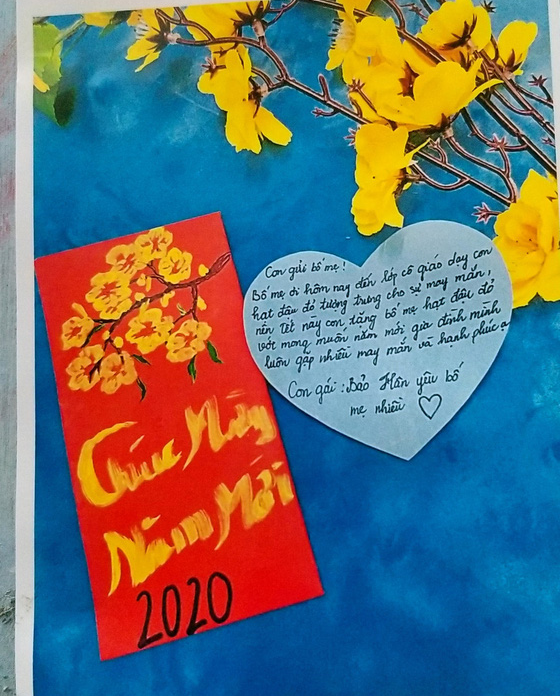 Chúc Mừng
Năm Mới
2020
Con gửi bố mẹ!
Bố mẹ ơi hôm nay đến lớp cô giáo dạy con
hạt đậu đỏ tượng trưng cho sự may mắn,
nên Tết này con tặng bố mẹ hạt đậu đỏ
với mong muốn năm mới gia đình mình
luôn gặp nhiều may mắn và hạnh phúc ạ
Con gái : Bảo Hân yêu bố
mẹ nhiều